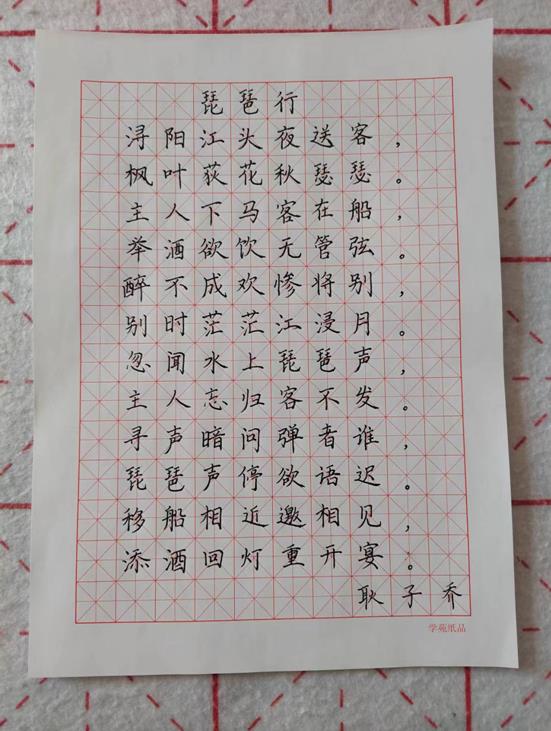 琵琶行
浔阳江头夜送客，
枫叶荻花秋瑟瑟。
主人下马客在船，
举酒欲饮无管弦。
醉不成欢惨将别，
别时茫茫江浸月。
忽闻水上琵琶声，
主人忘归客不发。
寻声暗问弹者谁，
琵琶声停欲语迟。
移船相近邀相见，
添酒回灯重开宴。
耿子乔
学苑纸品